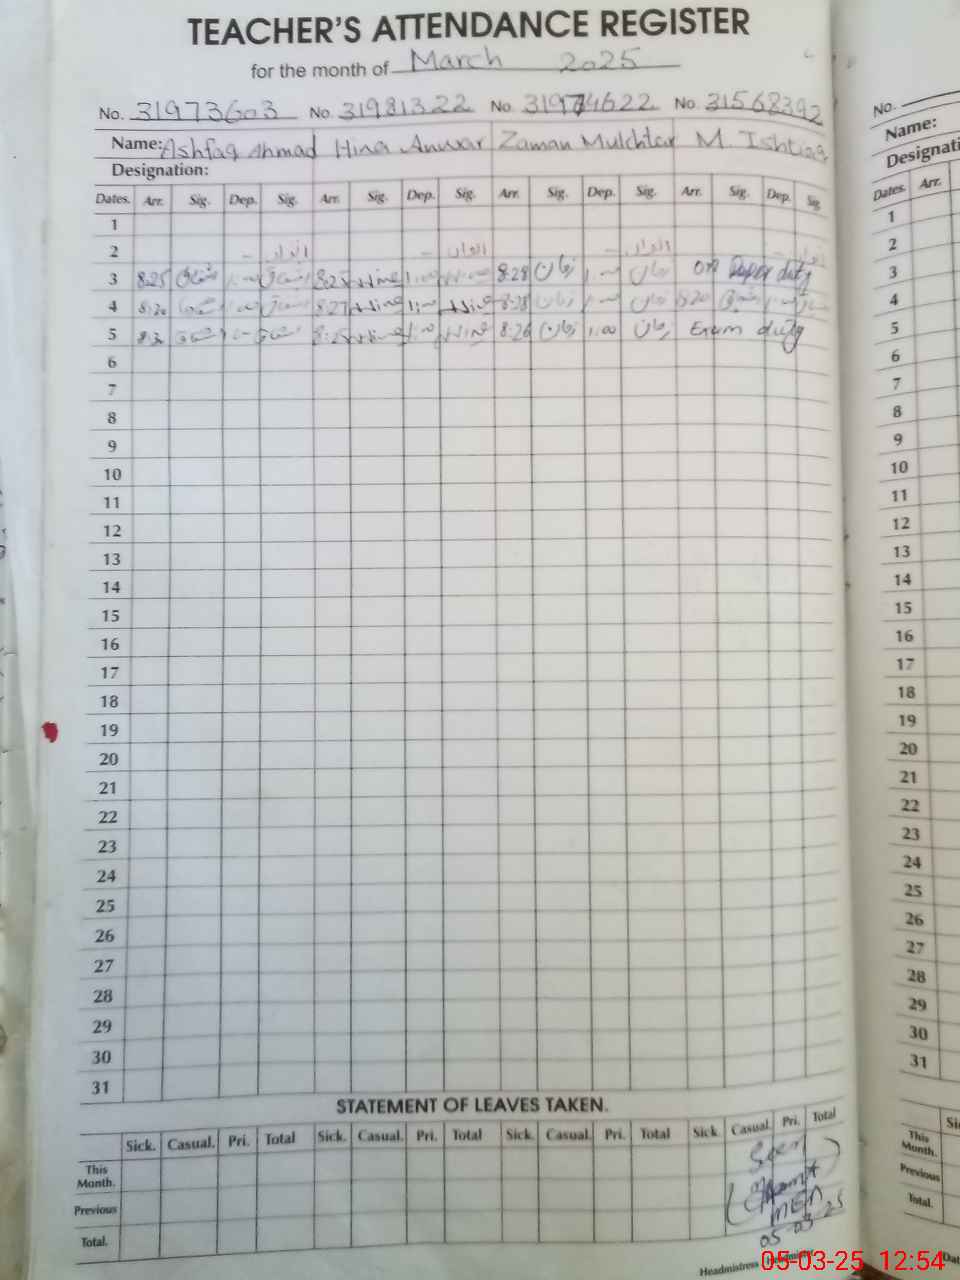 TEACHER'S ATTENDANCE REGISTER
for the month of March 2025
No. 31973603 No. 31981322 No. 31974622 No. 31568392 No.
Name: Ashfaq Ahmad Hina Anwar Zaman Mukhtar M. Ishtiaq Name:
Designation: Designati
Dates. Arr. Sig. Dep. Sig. Arr. Sig. Dep. Sig. Arr. Sig. Dep. Sig. Arr. Sig. Dep. Sig. Dates. Arr.
1 1
2 اتوار اتوار اتوار 2
3 8:25 8:25 1:00 8:28 زمان 1:00 زمان on Paper duty 3
4 8:20 8:27 1:00 8:28 زمان 1:00 زمان 8:20 4
5 8:26 زمان 1:00 زمان Exam duty 5
6 6
7 7
8 8
9 9
10 10
11 11
12 12
13 13
14 14
15 15
16 16
17 17
18 18
19 19
20 20
21 21
22 22
23 23
24 24
25 25
26 26
27 27
28 28
29 29
30 30
31 31
STATEMENT OF LEAVES TAKEN.
Sick. Casual. Pri. Total Sick. Casual. Pri. Total Sick. Casual. Pri. Total Sick. Casual. Pri. Total
This Month. This Month.
Previous Previous
Total. Total.
Seen
MEA
05-03-25
Headmistress / Headmister
05-03-25 12:54